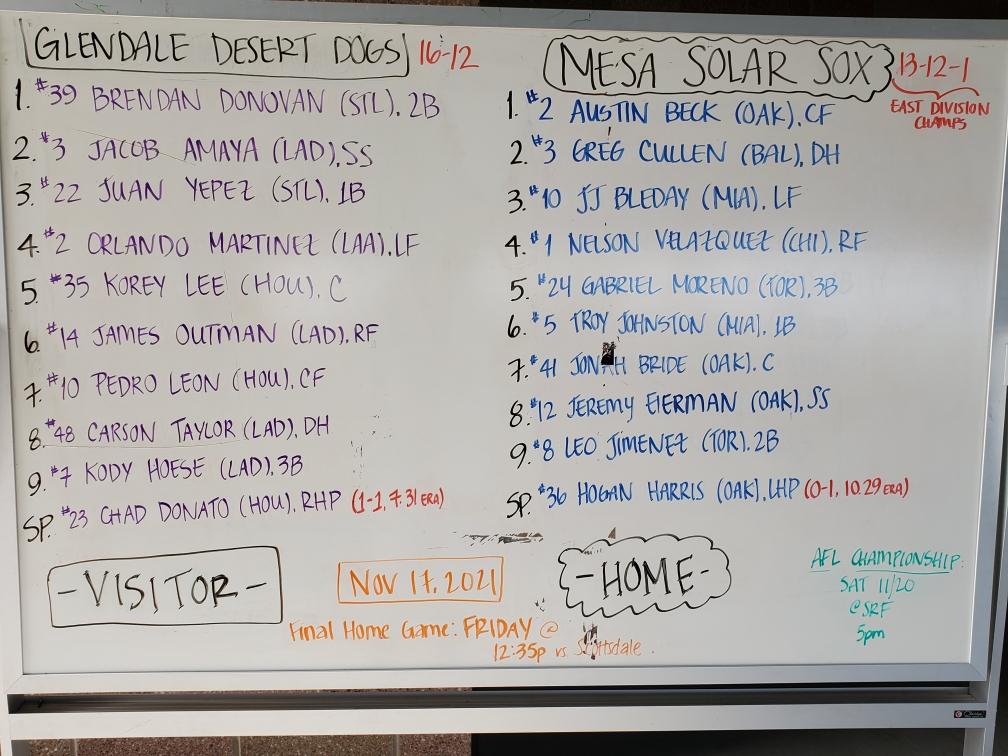 GLENDALE DESERT DOGS 16-12
1. #39 BRENDAN DONOVAN (STL). 2B
2. #3 JACOB AMAYA (LAD), SS
3. #22 JUAN YEPEZ (STL). 1B
4. #2 ORLANDO MARTINEZ (LAA). LF
5. #35 KOREY LEE (HOU). C
6. #14 JAMES OUTMAN (LAD). RF
7. #10 PEDRO LEON (HOU). CF
8. #48 CARSON TAYLOR (LAD), DH
9. #7 KODY HOESE (LAD). 3B
SP. #23 CHAD DONATO (HOU). RHP (1-1, 7.31 ERA)
-VISITOR-
MESA SOLAR SOX 13-12-1
EAST DIVISION
CHAMPS
1. #2 AUSTIN BECK (OAK). CF
2. #3 GREG CULLEN (BAL), DH
3. #10 JJ BLEDAY (MIA). LF
4. #1 NELSON VELAZQUEZ (CHI), RF
5. #24 GABRIEL MORENO (TOR). 3B
6. #5 TROY JOHNSTON (MIA). 1B
7. #41 JONAH BRIDE (OAK). C
8. #12 JEREMY EIERMAN (OAK), SS
9. #8 LEO JIMENEZ (TOR). 2B
SP. #36 HOGAN HARRIS (OAK), LHP (0-1, 10.29 ERA)
-HOME-
NOV 17, 2021
Final Home Game: FRIDAY @
12:35p vs. Scottsdale.
AFL CHAMPIONSHIP:
SAT 11/20
@SRF
5pm